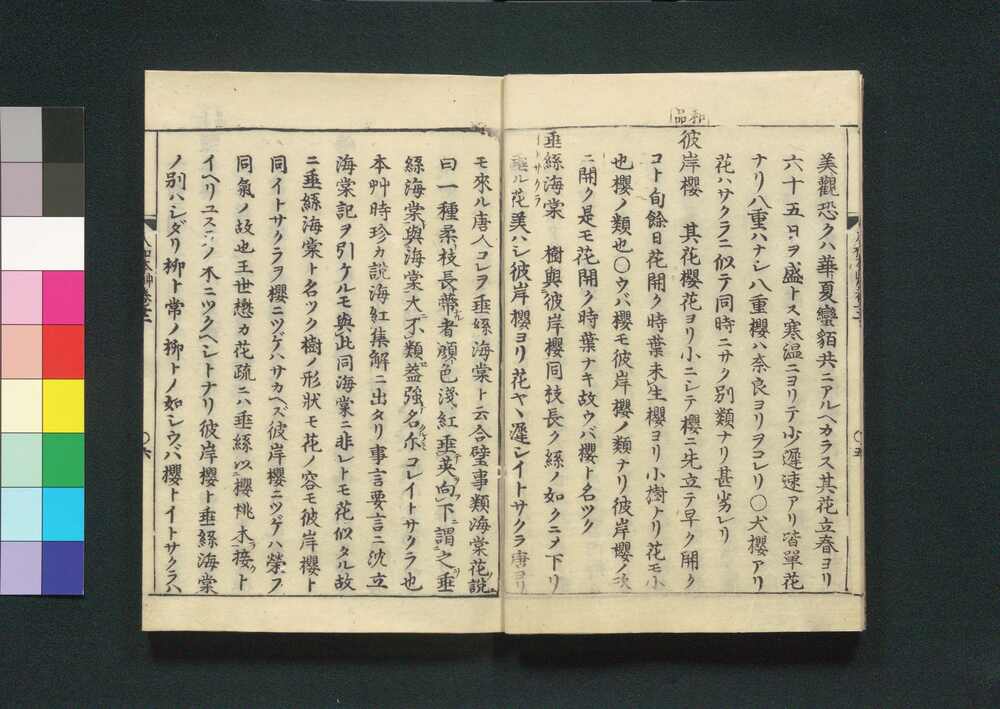 美觀恐クハ華夏蠻貊共ニアルヘカラス其花立春ヨリ
六十五日ヲ盛トス寒温ニヨリテ少遲速アリ皆單花
ナリ八重ハナシ八重櫻ハ奈良ヨリヲコレリ〇犬櫻アリ
花ハサクラニ似テ同時ニサク別類ナリ甚劣レリ
和品
彼岸櫻 其花櫻花ヨリ小ニシテ櫻ニ先立テ早ク開ク
コト旬餘日花開ク時葉未生櫻ヨリ小樹ナリ花モ小
也櫻ノ類也〇ウバ櫻モ彼岸櫻ノ類ナリ彼岸櫻ノ次
ニ開ク是モ花開ク時葉ナキ故ウバ櫻ト名ツク
垂絲海棠 樹與彼岸櫻同枝長ク絲ノ如クニメ下リ
イトサクラ
垂ル花美ハシ彼岸櫻ヨリ花ヤヽ遲シイトサクラ唐ヨリ
モ來ル唐人コレヲ垂絲海棠ト云合璧事類海棠花説
曰一種柔枝長蔕者顔色淺紅垂英向下謂之垂
絲海棠與海棠大不類蓋強名尓コレイトサクラ也
本艸時珍カ説海紅集解ニ出タリ事言要言ニ沈立
海棠記ヲ引ケルモ與此同海棠ニ非レトモ花似タル故
ニ垂絲海棠ト名ツク樹ノ形狀モ花ノ容モ彼岸櫻ト
同イトサクラヲ櫻ニツゲハサカヘズ彼岸櫻ニツゲハ榮フ
同氣ノ故也王世懋カ花疏ニハ垂絲以櫻桃木接ト
イヘリユスラノ木ニツクヘシトナリ彼岸櫻ト垂絲海棠
ノ別ハシダリ柳ト常ノ柳トノ如シウバ櫻トイトサクラハ
〇六